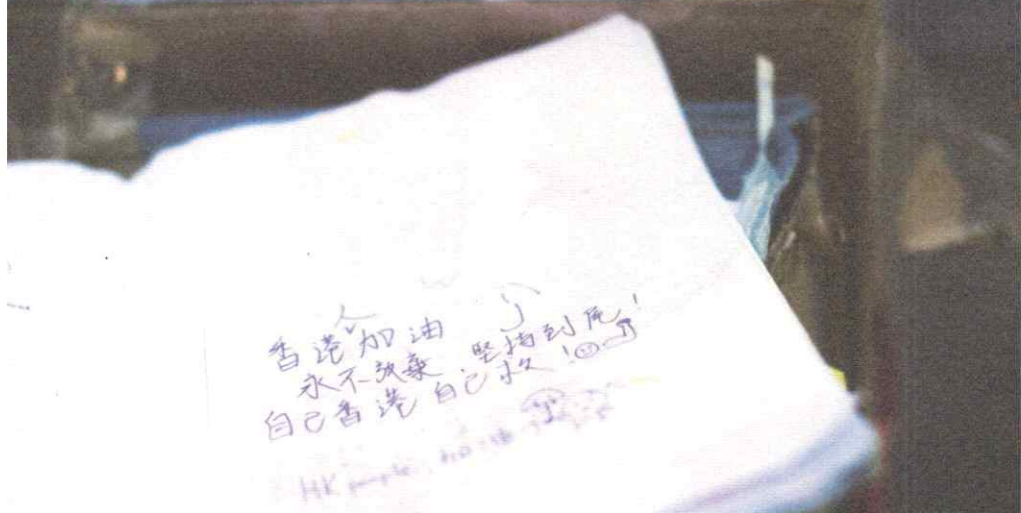 香港人加油
永不放棄,堅持到尾!
自己香港自己救!
HK people, 加油